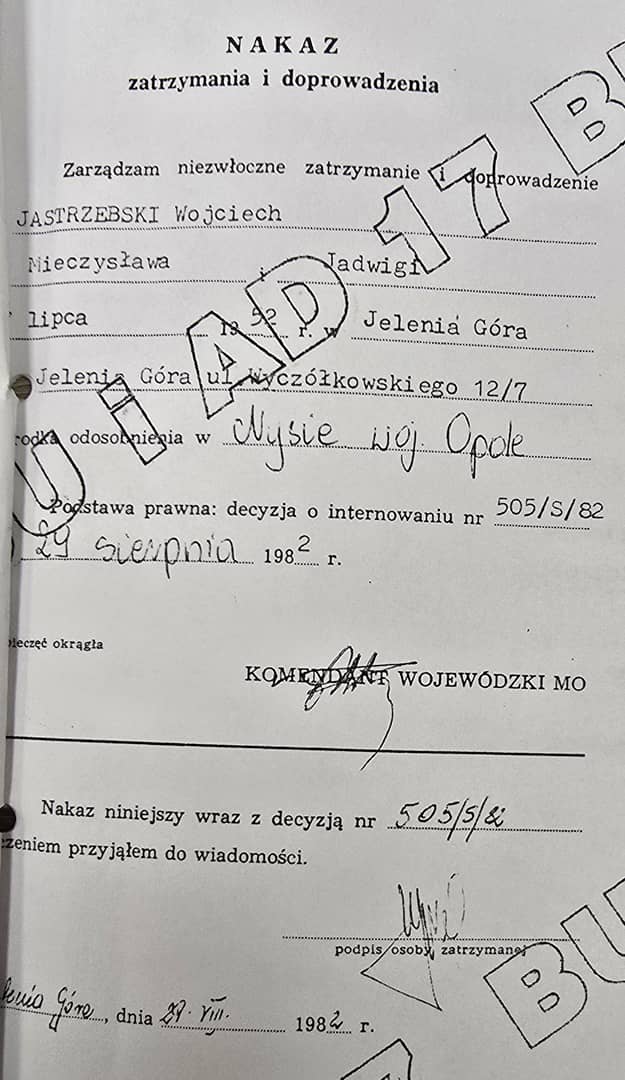 NAKAZ
zatrzymania i doprowadzenia
Zarządzam niezwłoczne zatrzymanie i doprowadzenie
JASTRZEBSKI Wojciech
Mieczysława i Jadwigi
lipca 19 52 r. w Jelenia Góra
Jelenia Góra ul. Wyczółkowskiego 12/7
rodka odosobnienia w Nysie woj. Opole
Podstawa prawna: decyzja o internowaniu nr 505/S/82
29 sierpnia 1982 r.
pieczęć okrągła
KOMENDANT WOJEWÓDZKI MO
Nakaz niniejszy wraz z decyzją nr 505/S/82
zeniem przyjąłem do wiadomości.
podpis osoby zatrzymanej
lenia Góra, dnia 29. VIII. 1982 r.
BU IAD 17 B
BU